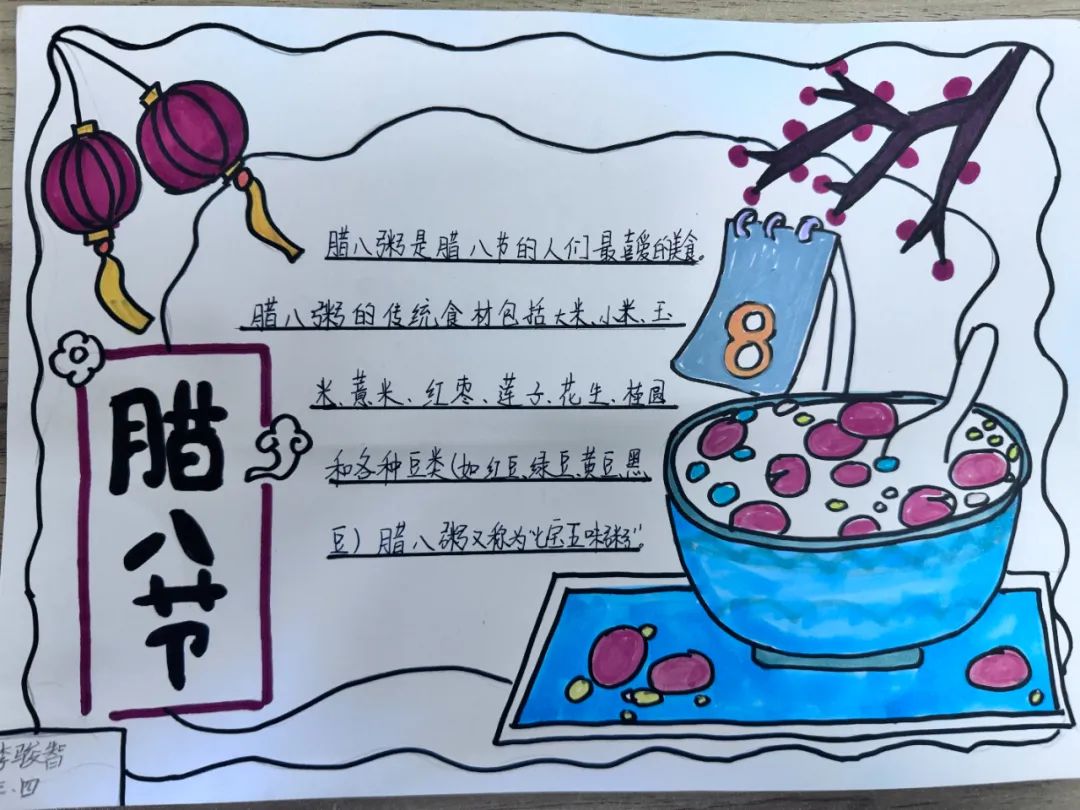 腊八粥是腊八节的人们最喜爱的美食。
腊八粥的传统食材包括大米、小米、玉
米、薏米、红枣、莲子、花生、桂圆
和各种豆类(如红豆、绿豆、黄豆、黑
豆)腊八粥又称为"七宝五味粥"
8
腊
八
节
李骏智
三.四